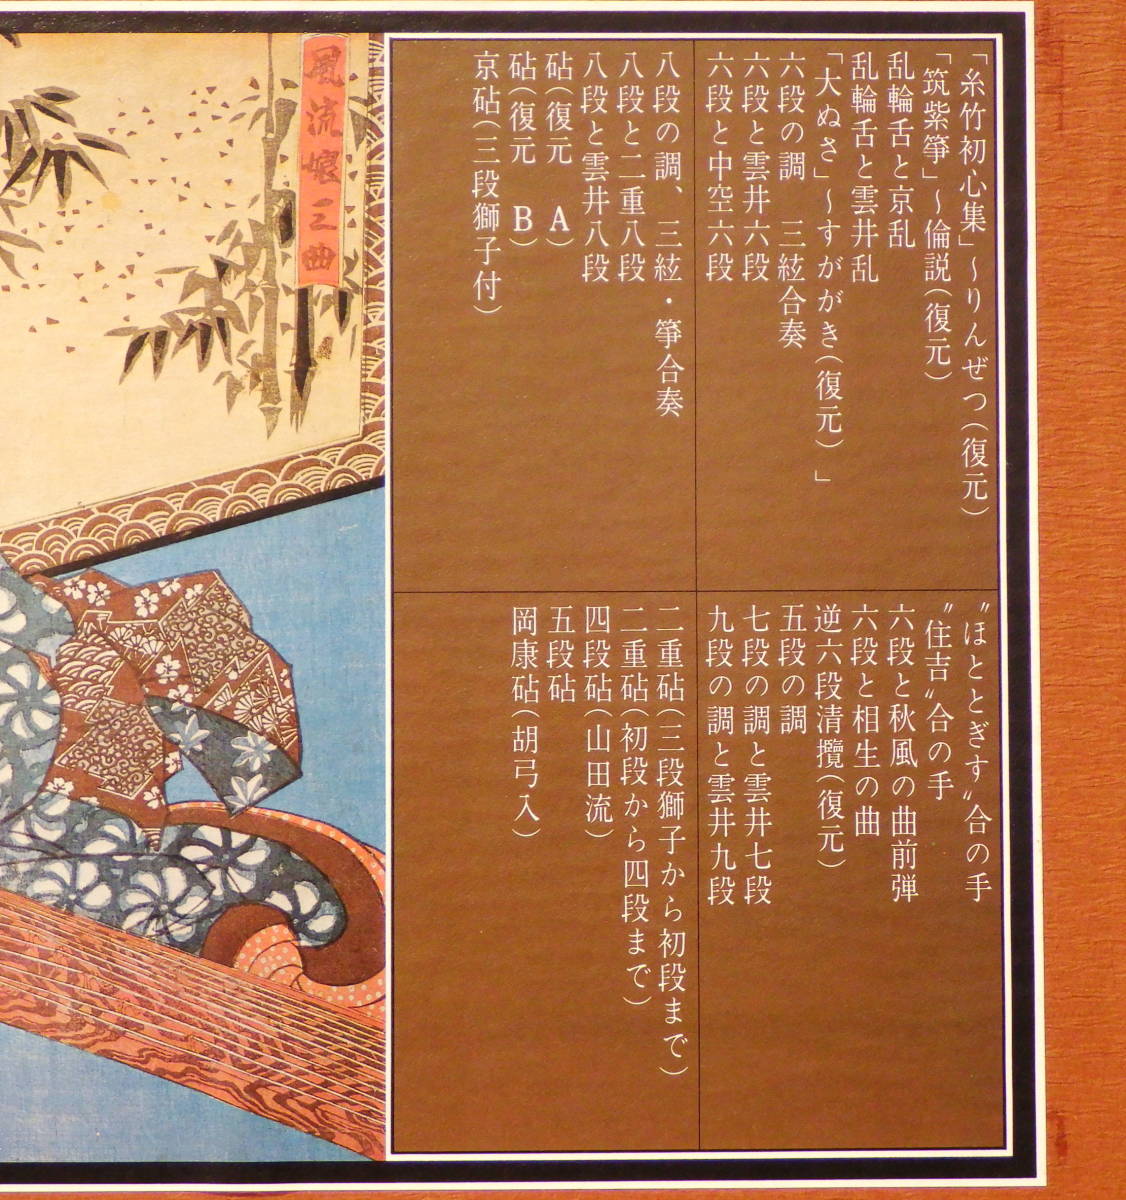 「糸竹初心集」～りんぜつ(復元)
「筑紫箏」～倫説(復元)
乱輪舌と京乱
乱輪舌と雲井乱
「大ぬさ」～すががき(復元)」
六段の調　三絃合奏
六段と雲井六段
六段と中空六段
〝ほととぎす〟合の手
〝住吉〟合の手
六段と秋風の曲前弾
六段と相生の曲
逆六段清攬(復元)
五段の調
七段の調と雲井七段
九段の調と雲井九段
八段の調、三絃・箏合奏
八段と二重八段
八段と雲井八段
砧(復元　A)
砧(復元　B)
京砧(三段獅子付)
二重砧(三段獅子から初段まで)
二重砧(初段から四段まで)
四段砧(山田流)
五段砧
岡康砧(胡弓入)
風流娘三曲